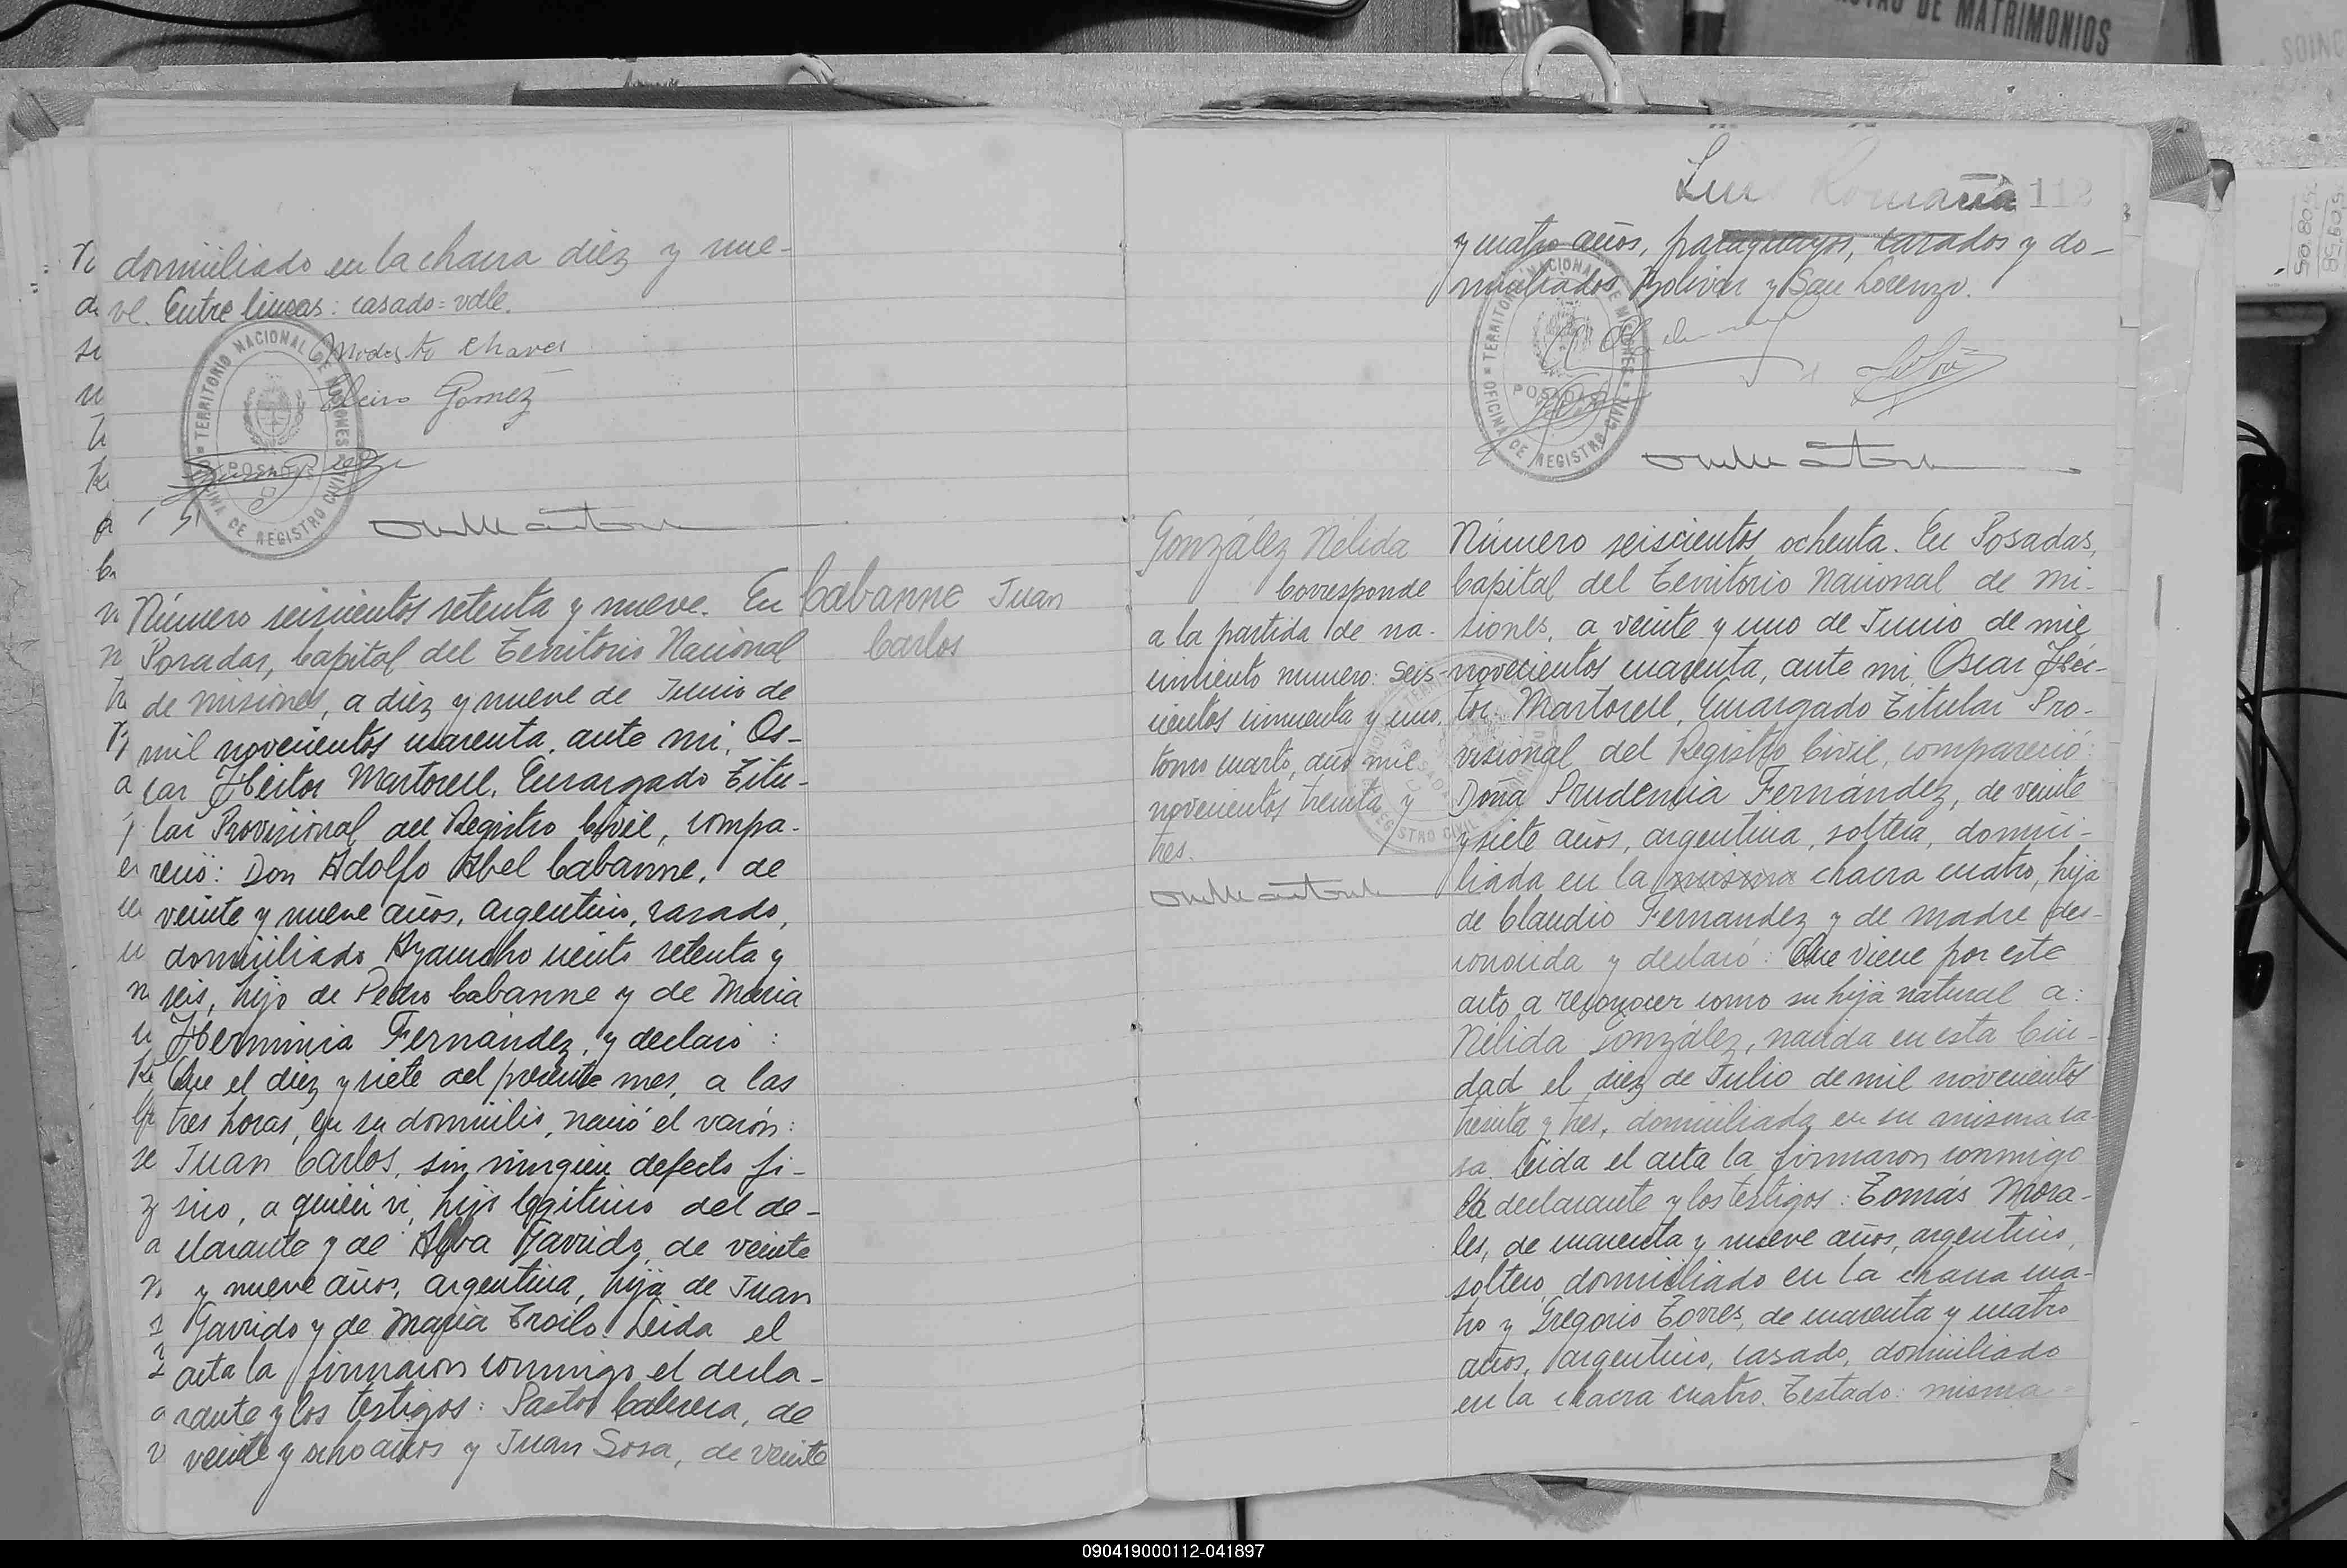 DE MATRIMONIOS
domiciliado en la chacra diez y nue-
ve. Entre lineas: casado = vale.
Modesto Chaves
Gomez
TERRITORIO NACIONAL DE MISIONES
POSADAS
OFICINA DE REGISTRO CIVIL
Cabanne Juan
Carlos
Número seiscientos setenta y nueve. En
Posadas, Capital del Territorio Nacional
de Misiones, a diez y nueve de Junio de
mil novecientos cuarenta, ante mi, Os-
car Héctor Martorell, Encargado Titu-
lar Provisional del Registro Civil, compa-
reció: Don Adolfo Abel Cabanne, de
veinte y nueve años, argentino, casado,
domiciliado Ayacucho ciento setenta y
seis, hijo de Pedro Cabanne y de Maria
Herminia Fernández, y declaró:
Que el diez y siete del presente mes, a las
tres horas, en su domicilio, nació el varón:
Juan Carlos, sin ningún defecto fi-
sico, a quien vi, hijo legítimo del de-
clarante y de Garrido, de veinte
y nueve años, argentina, hija de Juan
Garrido y de Maria Troilo. Leida el
acta la firmaron conmigo el decla-
rante y los testigos: Pastor Cabrera, de
veinte y ocho años y Juan Sosa, de veinte
Luis Romaña 113
y cuatro años, paraguayos, casados y do-
miciliados Bolivar y San Lorenzo.
TERRITORIO NACIONAL DE MISIONES
POSADAS
OFICINA DE REGISTRO CIVIL
González Nélida
Corresponde
a la partida de na-
cimiento numero: Seis-
cientos cincuenta y uno,
tomo cuarto, año mil
novecientos treinta y
tres.
Número seiscientos ochenta. En Posadas,
Capital del Territorio Nacional de Mi-
siones, a veinte y uno de Junio de mil
novecientos cuarenta, ante mi, Oscar Héc-
tor Martorell, Encargado Titular Pro-
visional del Registro Civil, compareció:
Doña Prudencia Fernández, de veinte
y siete años, argentina, soltera, domici-
liada en la misma chacra cuatro, hija
de Claudio Fernandez y de madre des-
conocida y declaró: Que viene por este
acto a reconocer como su hija natural a:
Nélida González, nacida en esta Ciu-
dad el diez de Julio de mil novecientos
treinta y tres, domiciliada en su misma ca-
sa. Leida el acta la firmaron conmigo
la declarante y los testigos: Tomás Mora-
les, de cuarenta y nueve años, argentino,
soltero, domiciliado en la chacra cua-
tro y Gregorio Torres, de cuarenta y cuatro
años, argentino, casado, domiciliado
en la chacra cuatro. Testado: misma =
090419000112-041897